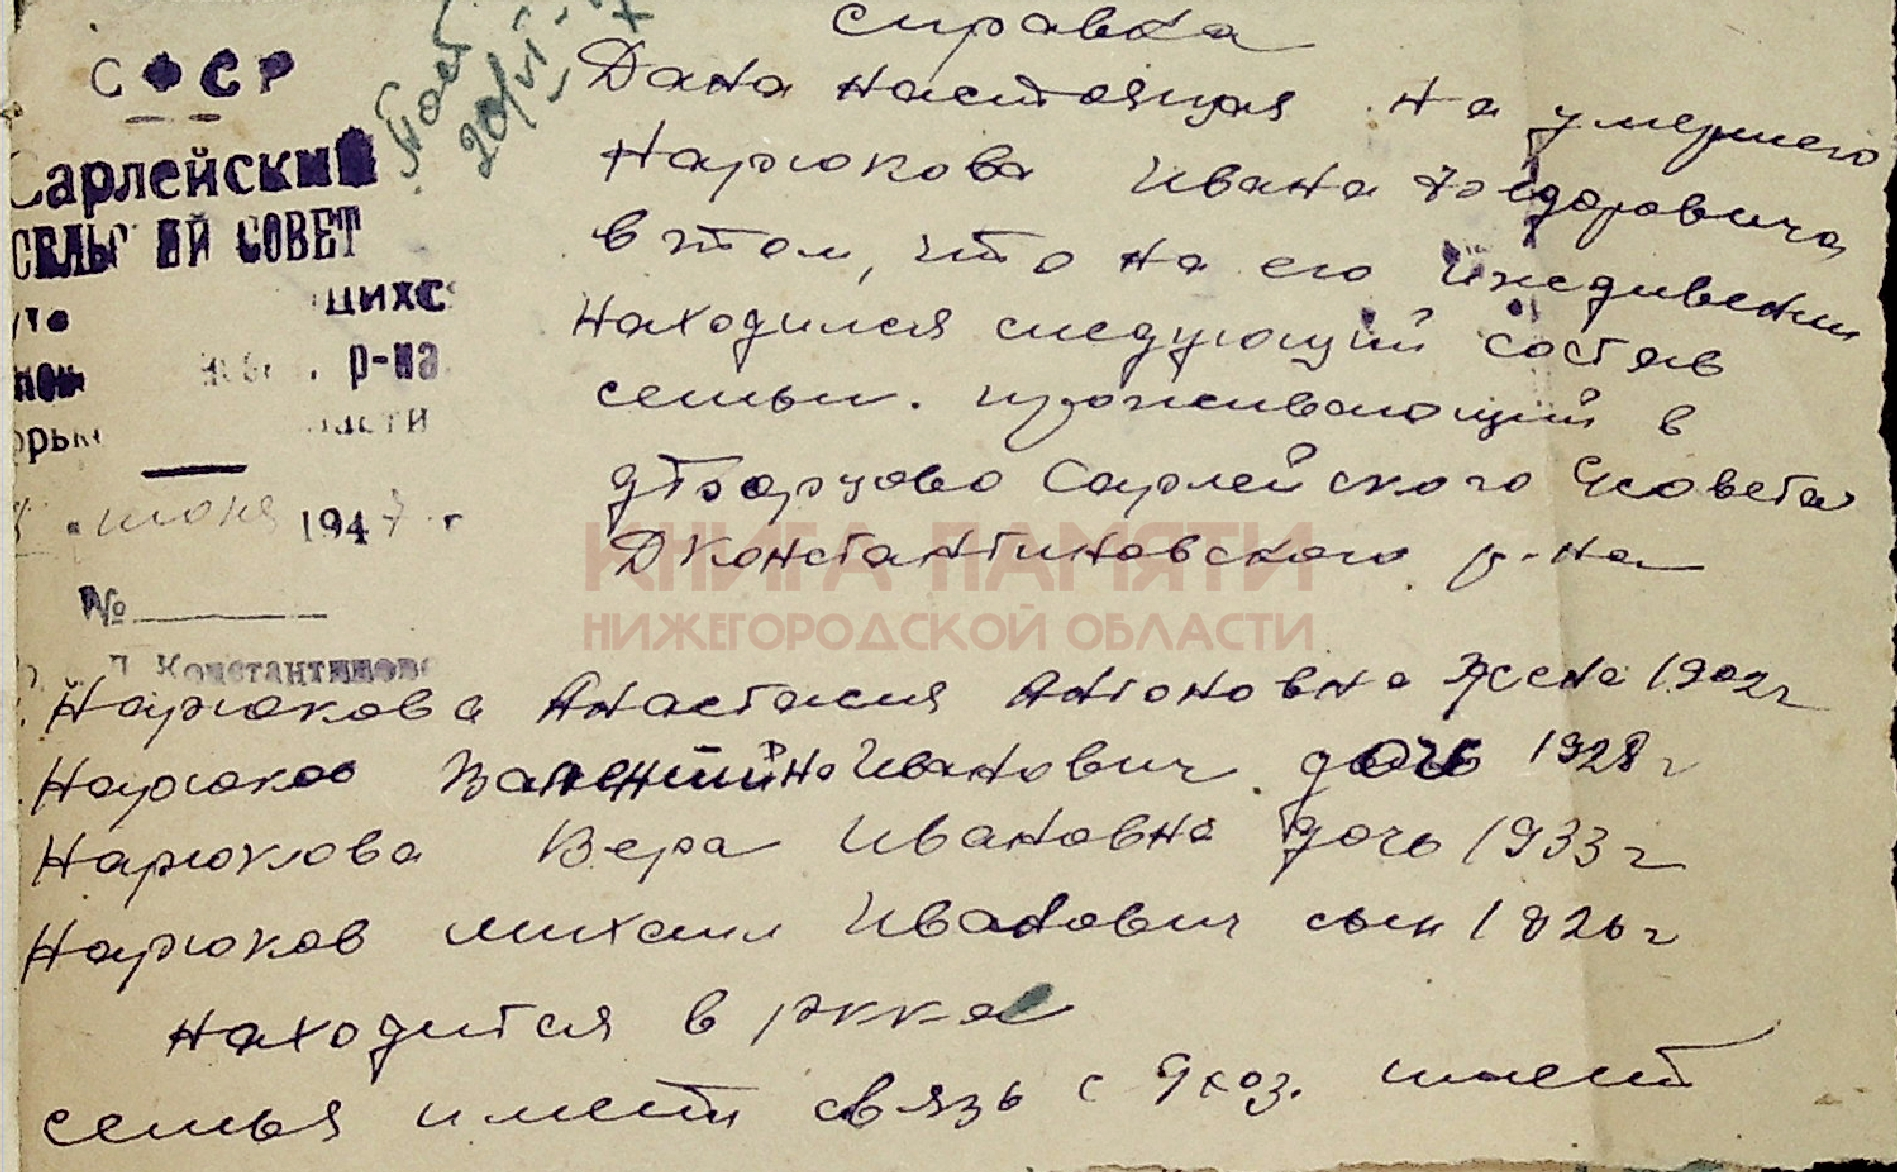 СФСР
Сарлейский
СЕЛЬС ИЙ СОВЕТ
щихс
р-на
асти
июня 1947 г
№
Д Константинов
Пост
20/VI-
справка
Дана настоящая на умершего
Нарюкова Ивана Фёдоровича
в том, что на его иждивении
находился следующий состав
семьи. проживающий в
дТборцово Сарлейского с совета
ДКонстантиновского р-на
КНИГА ПАМЯТИ
НИЖЕГОРОДСКОЙ ОБЛАСТИ
Нарюкова Анастасия Антоновна жена 1902г
Нарюков Валентина Иванович дочь 1928г
Нарюкова Вера Ивановна дочь 1933г
Нарюков михаил Иванович сын 1926г
находится в ркка
семья имеет связь с хоз. имеет